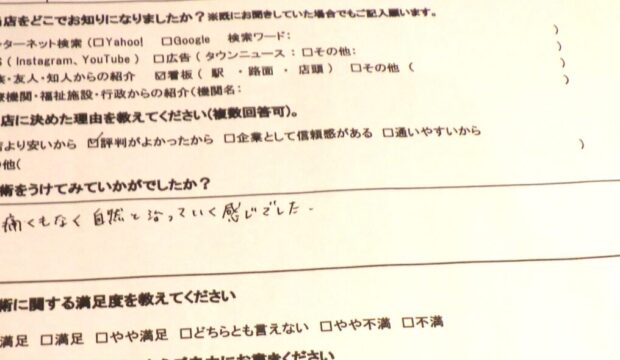 店をどこでお知りになりましたか？※既にお聞きしていた場合でもご記入願います。
ターネット検索（□Yahoo!　□Google　検索ワード：　）
S（Instagram、YouTube）□広告（タウンニュース：□その他：　）
族・友人・知人からの紹介　☑看板（駅・路面・店頭）□その他（　）
療機関・福祉施設・行政からの紹介（機関名：　）
店に決めた理由を教えてください（複数回答可）。
店より安いから　☑評判がよかったから　□企業として信頼感がある　□通いやすいから
の他（　）
術をうけてみていかがでしたか？
痛くもなく自然と治っていく感じでした.
術に関する満足度を教えてください
満足　□満足　□やや満足　□どちらとも言えない　□やや不満　□不満